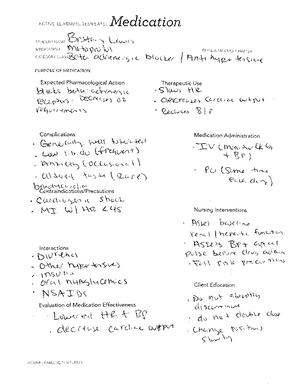 ACTIVE LEARNING TEMPLATE: Medication
STUDENT NAME Brittany Lewis
MEDICATION Metoprolol
REVIEW MODULE CHAPTER
CATEGORY CLASS Beta adrenergic blocker / Anti hypertensive
PURPOSE OF MEDICATION
Expected Pharmacological Action
blocks beta adrenergic
receptors. Decreases O2
requirements
Therapeutic Use
• Slows HR
• decreases cardiac output
• Reduces B/P
Complications
• Generally well tolerated
• Low (frequent)
• Anxiety (occasional)
• Altered taste (Rare)
bradycardia
Medication Administration
• IV (Monitor
+ BP)
• PO (Same time
each day)
Contraindications/Precautions
• Cardiogenic shock
• MI W/ HR <45
Nursing Interventions
• Assess baseline
renal/hepatic function
• Assess BP + apical
pulse before drug admin
• Fall risk precaution
Interactions
• Diuretics
• Other hypertensives
• insulin
• oral hypoglycemics
• NSAIDs
Client Education
• Do not abruptly
discontinue
• do not double dose
• Change positions
slowly
Evaluation of Medication Effectiveness
• Lowered HR + BP
• decrease cardiac output
ACTIVE LEARNING TEMPLATES